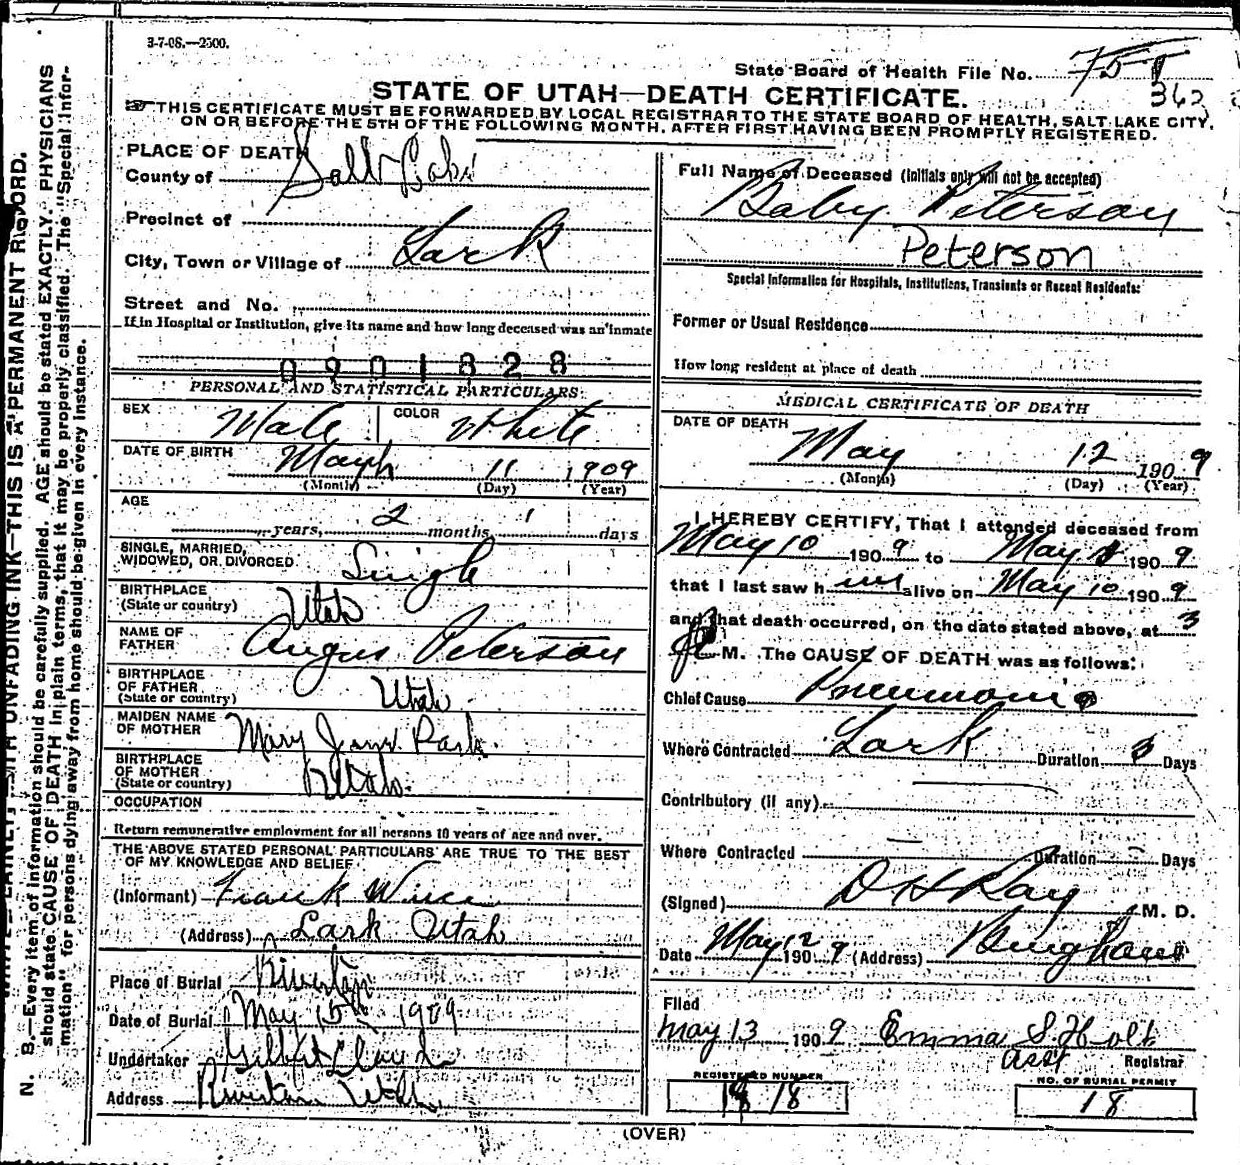 3-7-08.—2500.
State Board of Health File No. 75
362
STATE OF UTAH—DEATH CERTIFICATE.
THIS CERTIFICATE MUST BE FORWARDED BY LOCAL REGISTRAR TO THE STATE BOARD OF HEALTH, SALT LAKE CITY,
ON OR BEFORE THE 5TH OF THE FOLLOWING MONTH, AFTER FIRST HAVING BEEN PROMPTLY REGISTERED.
N. B.—Every item of information should be carefully supplied. AGE should be stated EXACTLY. PHYSICIANS
should state CAUSE OF DEATH in plain terms, that it may be properly classified. The "Special Infor-
mation" for persons dying away from home should be given in every instance.
UNFADING INK—THIS IS A PERMANENT RECORD.
PLACE OF DEATH
County of Salt Lake
Precinct of
City, Town or Village of Lark
Street and No.
If in Hospital or Institution, give its name and how long deceased was an inmate
0901828
PERSONAL AND STATISTICAL PARTICULARS:
SEX Male COLOR White
DATE OF BIRTH March 11 1909
(Month) (Day) (Year)
AGE
years, 2 months, 1 days
SINGLE, MARRIED,
WIDOWED, OR DIVORCED Single
BIRTHPLACE
(State or country) Utah
NAME OF
FATHER Angus Peterson
BIRTHPLACE
OF FATHER
(State or country) Utah
MAIDEN NAME
OF MOTHER Mary
BIRTHPLACE
OF MOTHER
(State or country) Utah.
OCCUPATION
Return remunerative employment for all persons 10 years of age and over.
THE ABOVE STATED PERSONAL PARTICULARS ARE TRUE TO THE BEST
OF MY KNOWLEDGE AND BELIEF.
(Informant) Frank
(Address) Lark Utah
Place of Burial Riverton
Date of Burial May 15th 1909
Undertaker
Address Riverton Utah
Full Name of Deceased (Initials only will not be accepted)
Baby Peterson
Peterson
Special Information for Hospitals, Institutions, Transients or Recent Residents:
Former or Usual Residence
How long resident at place of death
MEDICAL CERTIFICATE OF DEATH
DATE OF DEATH
May 12 1909
(Month) (Day) (Year)
I HEREBY CERTIFY, That I attended deceased from
May 10 1909 to May 1909
that I last saw him alive on May 10 1909
and that death occurred, on the date stated above, at 3
M. The CAUSE OF DEATH was as follows:
Chief Cause Pneumonia
Where Contracted Lark Duration 3 Days
Contributory (if any)
Where Contracted Duration Days
(Signed) D H Ray M. D.
Date May 12 1909 (Address) Bingham
Filed
May 13 1909 Emma S. Holt
Asst Registrar
REGISTERED NUMBER
18
NO. OF BURIAL PERMIT
18
(OVER)